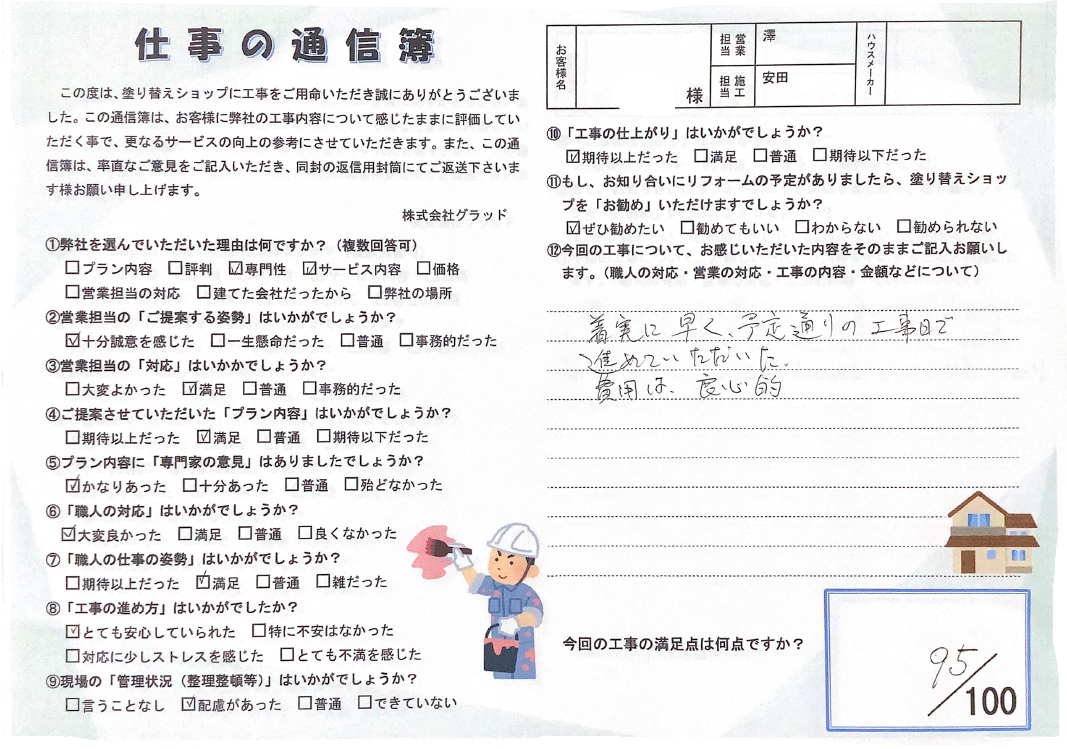 仕事の通信簿
この度は、塗り替えショップに工事をご用命いただき誠にありがとうございま
した。この通信簿は、お客様に弊社の工事内容について感じたままに評価してい
ただく事で、更なるサービスの向上の参考にさせていただきます。また、この通
信簿は、率直なご意見をご記入いただき、同封の返信用封筒にてご返送下さいま
す様お願い申し上げます。
株式会社グラッド
①弊社を選んでいただいた理由は何ですか？（複数回答可）
□プラン内容 □評判 ☑専門性 ☑サービス内容 □価格
□営業担当の対応 □建てた会社だったから □弊社の場所
②営業担当の「ご提案する姿勢」はいかがでしょうか？
☑十分誠意を感じた □一生懸命だった □普通 □事務的だった
③営業担当の「対応」はいかかでしょうか？
□大変よかった ☑満足 □普通 □事務的だった
④ご提案させていただいた「プラン内容」はいかがでしょうか？
□期待以上だった ☑満足 □普通 □期待以下だった
⑤プラン内容に「専門家の意見」はありましたでしょうか？
☑かなりあった □十分あった □普通 □殆どなかった
⑥「職人の対応」はいかがでしょうか？
☑大変良かった □満足 □普通 □良くなかった
⑦「職人の仕事の姿勢」はいかがでしょうか？
□期待以上だった ☑満足 □普通 □雑だった
⑧「工事の進め方」はいかがでしたか？
☑とても安心していられた □特に不安はなかった
□対応に少しストレスを感じた □とても不満を感じた
⑨現場の「管理状況（整理整頓等）」はいかがでしょうか？
□言うことなし ☑配慮があった □普通 □できていない
お客様名 様 営業担当 澤 ハウスメーカー
施工担当 安田
⑩「工事の仕上がり」はいかがでしょうか？
☑期待以上だった □満足 □普通 □期待以下だった
⑪もし、お知り合いにリフォームの予定がありましたら、塗り替えショッ
プを「お勧め」いただけますでしょうか？
☑ぜひ勧めたい □勧めてもいい □わからない □勧められない
⑫今回の工事について、お感じいただいた内容をそのままご記入お願いし
ます。（職人の対応・営業の対応・工事の内容・金額などについて）
着実に早く、予定通りの工事日で
進めていただいた。
費用は、良心的
今回の工事の満足点は何点ですか？
95/100